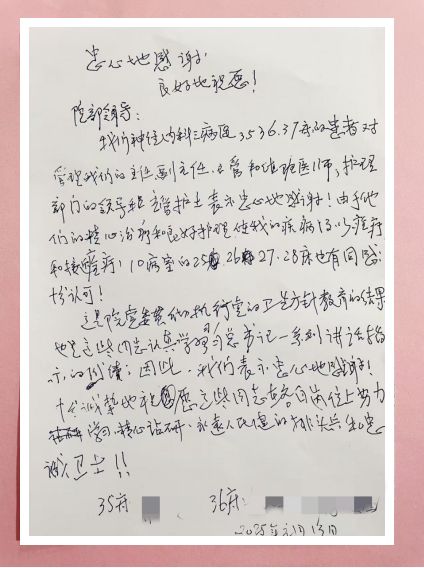 忠心地感谢
良好地祝愿！
院部领导：
我们神经内科三病区35 36.37床的患者对
管理我们的主任副主任.主管和值班医师,护理
部门的领导和主管护士表示忠心地感谢！由于他
们的精心治疗和良好护理使我的疾病得以痊疗
和接疗；10病室的25床26床27.28床也有同感；
十分认可！
这是院党委贯彻执行党的卫生方针教育的结果
也是这些同志认真学习习总书记一系列讲话指
示的成绩；因此，我们表示忠心地感谢！
十分诚挚地祝愿这些同志在各自岗位上努力
学习、精心钻研、永远人民健的排头兵和忠
诚卫士！！
35床 36床：
2025年元月13日